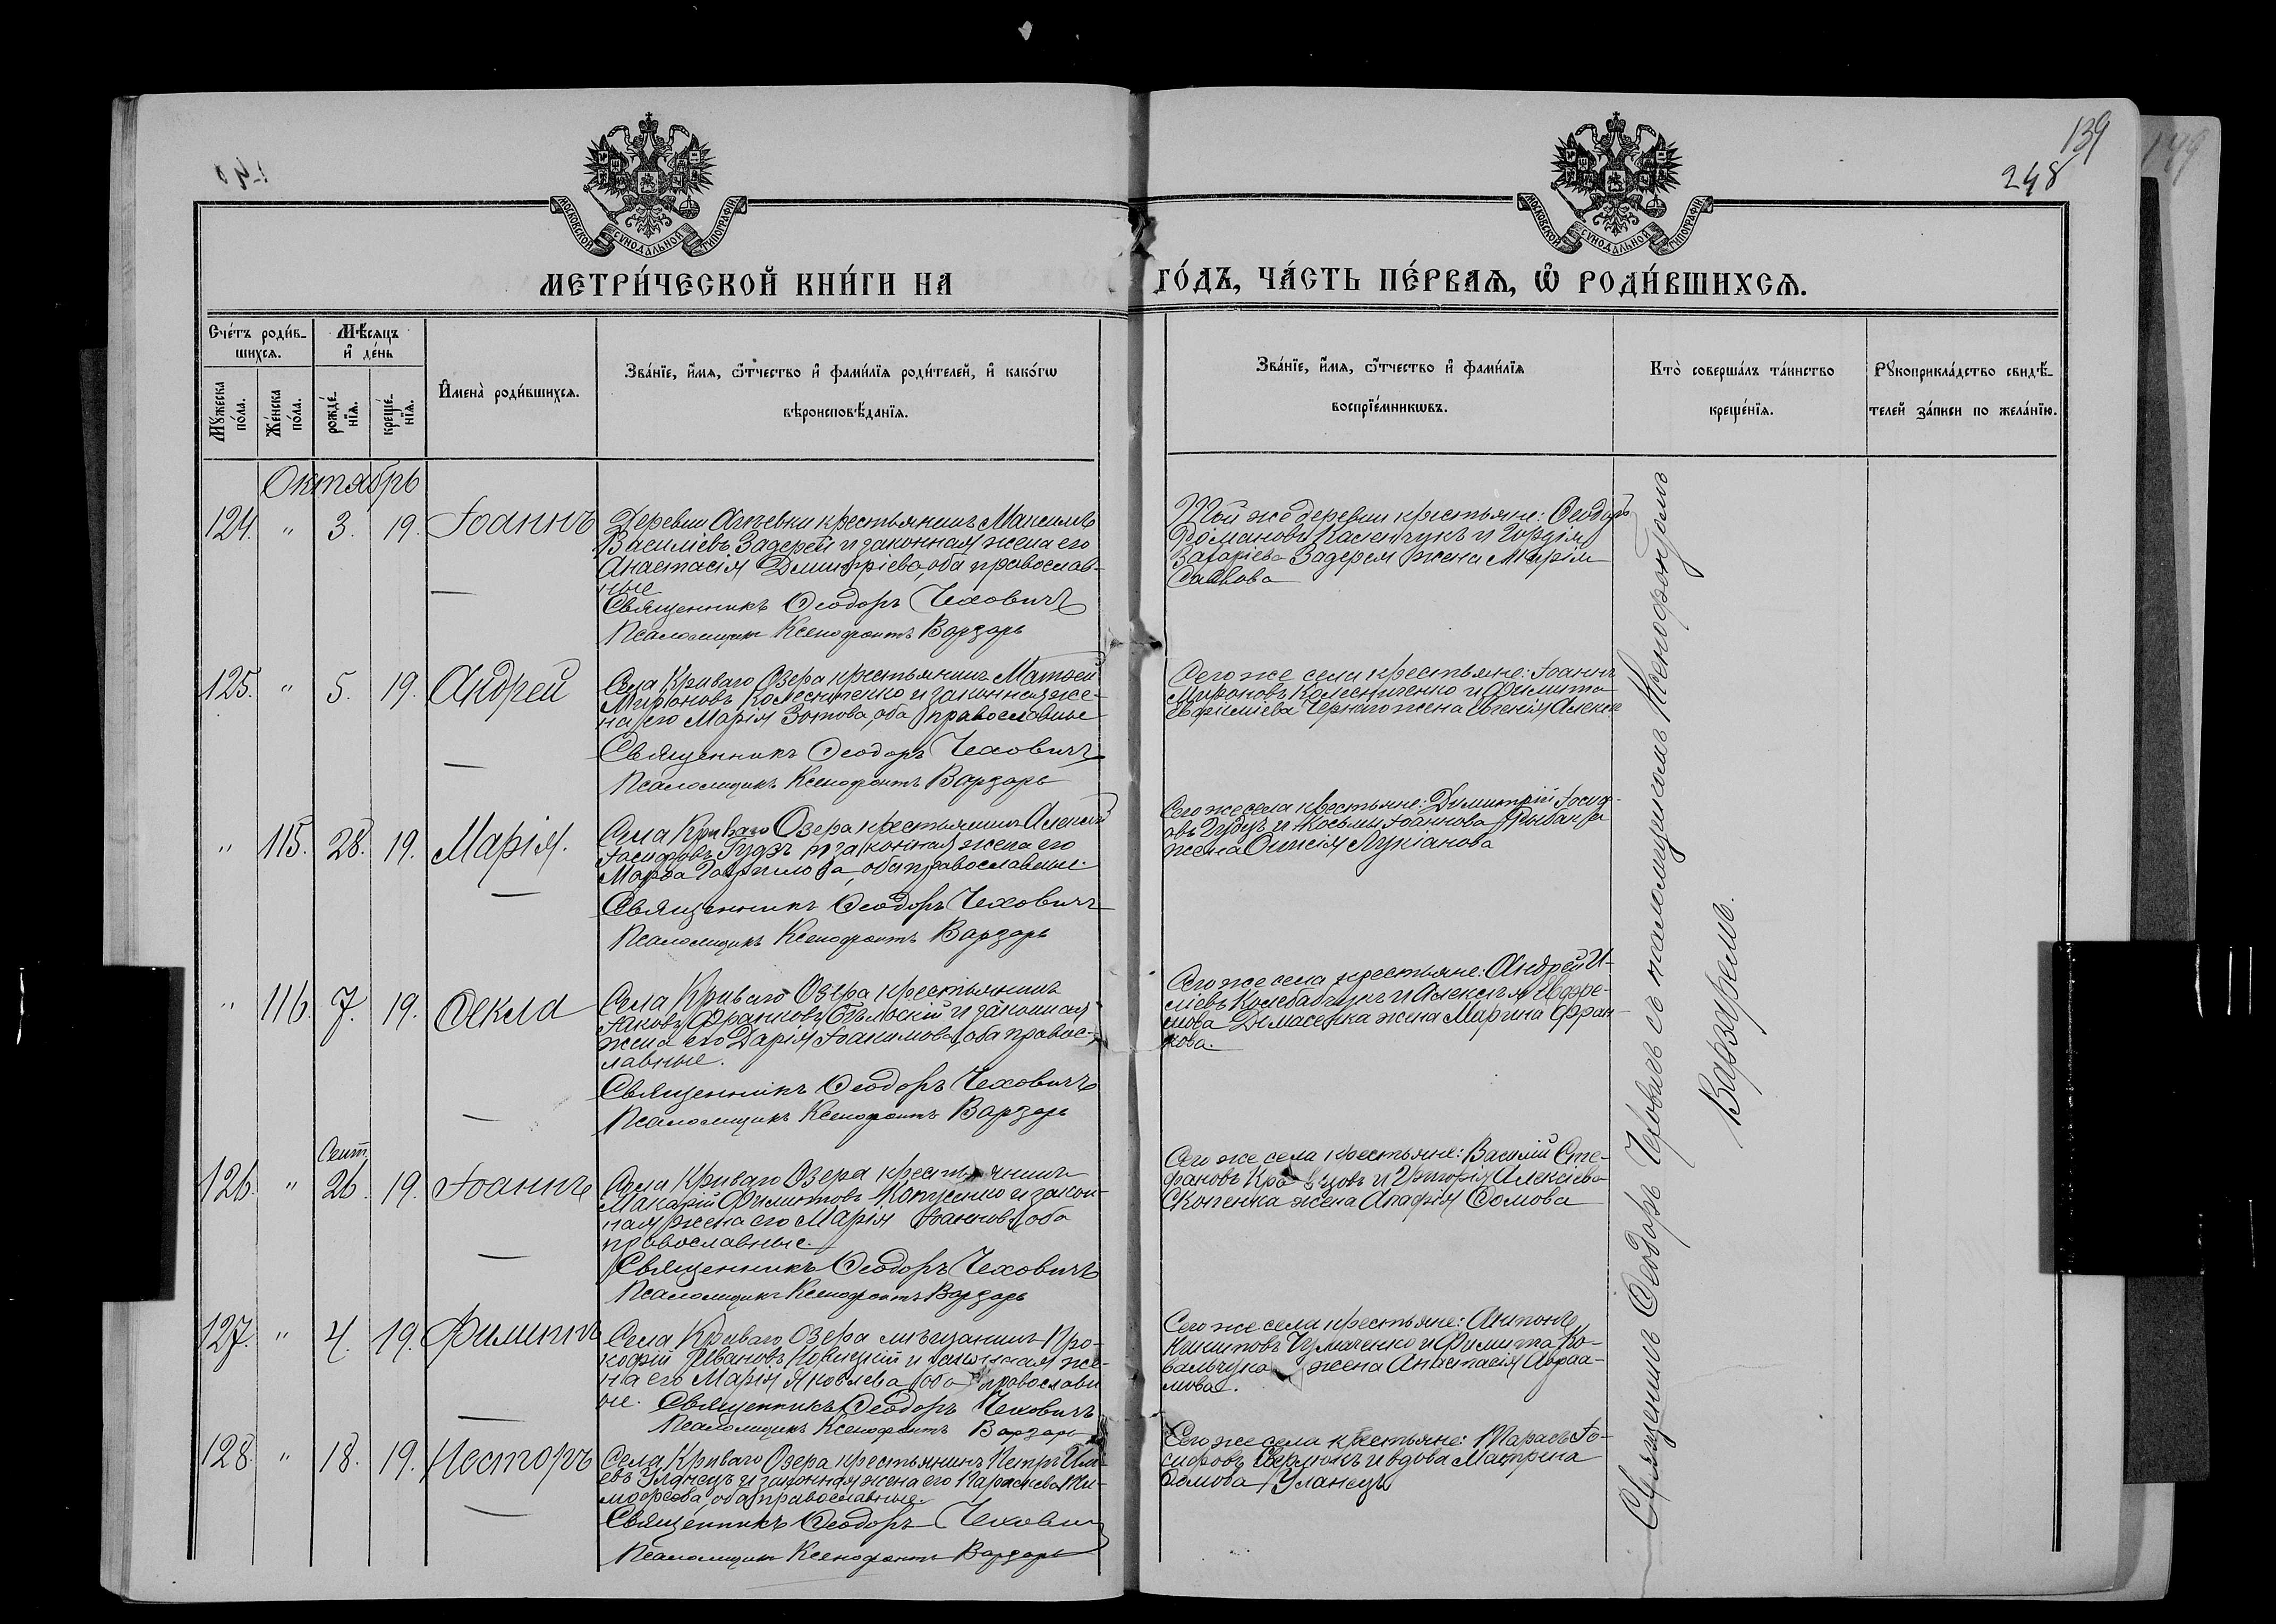 139
248
МОСКОВСКОЙ СѴНОДАЛЬНОЙ ТИПОГРАФІИ
МОСКОВСКОЙ СѴНОДАЛЬНОЙ ТИПОГРАФІИ
МЕТРИ́ЧЕСКОЙ КНИ́ГИ НА ГО́ДЪ, ЧА́СТЬ ПЕ́РВАѦ, Ѽ РОДИ́ВШИХСѦ.
Сче́тъ роди́в-
шихсѧ.
Мѣ́сѧцъ
и҆ де́нь
Мꙋжеска
по́ла.
Же́нска
по́ла.
рожде́-
нїѧ.
креще́-
нїѧ.
И҆мена̀ роди́вшихсѧ.
Зва́нїе, и҆́мѧ, ѻ҆́тчество и҆ фами́лїѧ роди́телей, и҆ како́гѡ
вѣроисповѣ́данїѧ.
Зва́нїе, и҆́мѧ, ѻ҆́тчество и҆ фами́лїѧ
воспрїе́мникѡвъ.
Кто̀ соверша́лъ та́инство
креще́нїѧ.
Рꙋкоприкла́дство свидѣ́-
телей за́писи по жела́нїю.
Октябрь
124. " 3. 19. Іоаннъ
Деревни крестьянинъ Максимъ
Василіевъ Задерей и законная жена его
Анастасія Димитріева, оба православ-
ные
Священникъ Ѳеодоръ Чеховичъ
Псаломщикъ Ксенофонтъ Варзарь
Той же деревни крестьяне: Ѳеодоръ
Романовъ и Гордія
Захаріева Задерея жена Марія
Саввова
125. " 5. 19. Андрей
Села Криваго Озера крестьянинъ Матѳей
Мироновъ Колесниченко и законная же-
на его Марія Зотова, оба православные
Священникъ Ѳеодоръ Чеховичъ
Псаломщикъ Ксенофонтъ Варзарь
Сего же села крестьяне: Іоаннъ
Мироновъ Колесниченко и Филиппа
Евфиміева Чернаго жена Евгенія Алексіе
" 115. 28. 19. Марія.
Села Криваго Озера крестьянинъ Алексій
Іосифовъ Гудзъ и законная жена его
Марѳа Гавриилова, оба православные.
Священникъ Ѳеодоръ Чеховичъ
Псаломщикъ Ксенофонтъ Варзарь
Сего же села крестьяне: Димитрій Іосиф-
овъ Гудзъ и Косьмы Іоаннова Рыбака
жена Лукіанова
" 116. 7. 19. Ѳекла
Села Криваго Озера крестьянинъ
Франковъ Бѣльскій и законная
жена его Дарія Іоакимова, оба правос-
лавные.
Священникъ Ѳеодоръ Чеховичъ
Псаломщикъ Ксенофонтъ Варзарь
Сего же села крестьяне: Андрей И-
ліевъ и Алексія
жена Марина Фран-
кова.
Сент.
126. " 26. 19. Іоаннъ
Села Криваго Озера крестьянинъ
Макарій Филипповъ и закон-
ная жена его Марія Іоаннова, оба
православные.
Священникъ Ѳеодоръ Чеховичъ
Псаломщикъ Ксенофонтъ Варзарь
Сего же села крестьяне: Василій Сте-
фановъ и Григорія Алексіева
Скопенка жена Агафія Ѳомова
127. " 4. 19. Филиппъ
Села Криваго Озера мѣщанинъ Про-
кофій Ивановъ Новицкій и законная же-
на его Марія Яковлева, оба православн
ые. Священникъ Ѳеодоръ Чеховичъ
Псаломщикъ Ксенофонтъ Варзарь
Сего же села крестьяне: Антонъ
Никитовъ Чумаченко и Филиппа Ко-
вальчука жена Анастасія Авраа-
мова.
128. " 18. 19. Несторъ
Села Криваго Озера крестьянинъ Петръ Илі-
евъ Уланецъ и законная жена его Параскева Ти-
моѳеева, оба православные.
Священникъ Ѳеодоръ Чеховичъ
Псаломщикъ Ксенофонтъ Варзарь
Сего же села крестьяне: Тарасъ Іо-
сифовъ и вдова Матрона
Ѳомова Уланецъ
Священникъ Ѳеодоръ Чеховичъ съ псаломщикомъ Ксенофонтомъ
Варзаремъ.